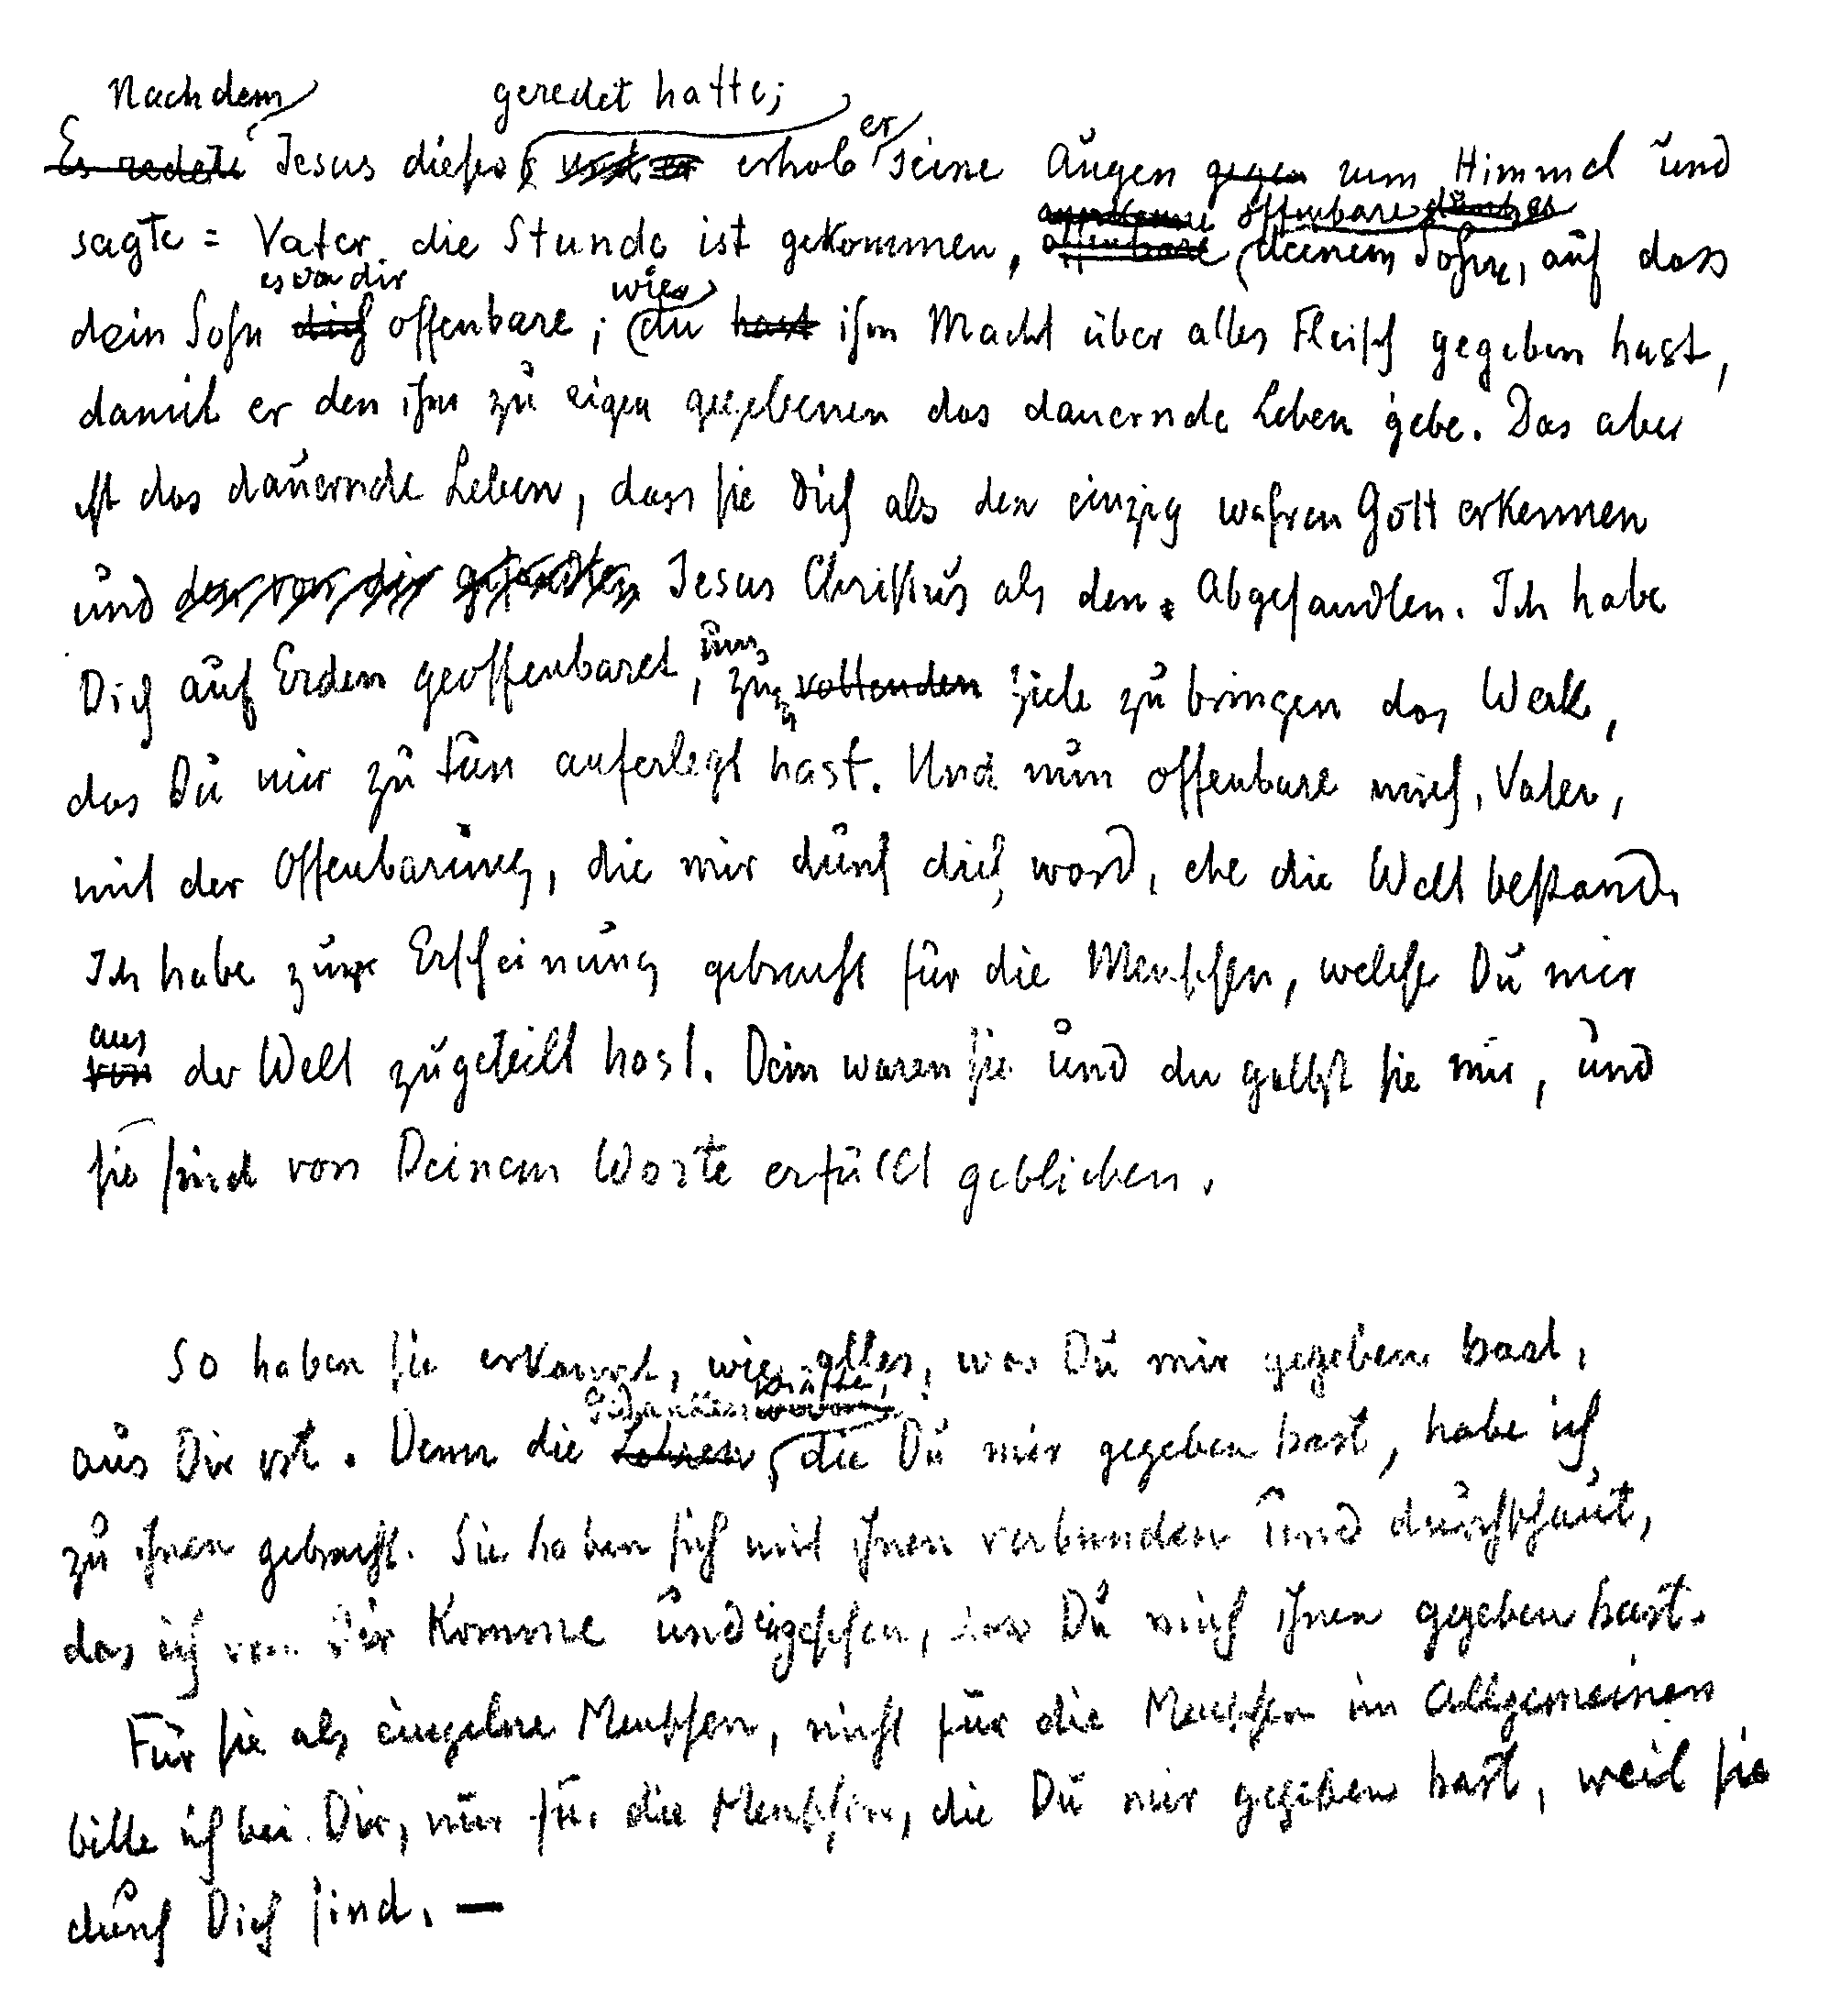 Nachdem geredet hatte;
Es redete Jesus dieses und er erhob er seine Augen gegen zum Himmel und
offenbare durch es
sagte = Vater die Stunde ist gekommen, offenbare deinem Sohne, auf dass
es von dir wie
dein Sohn dich offenbare; du hast ihm Macht über alles Fleisch gegeben hast,
damit er den ihm zu eigen gegebenen das dauernde Leben gebe. Das aber
ist das dauernde Leben, dass sie Dich als den einzig wahren Gott erkennen
und den von dir gesandten Jesus Christus als den Abgesandten. Ich habe
um
Dich auf Erden geoffenbaret, zu vollenden Ziele zu bringen das Werk,
das Du mir zu tun auferlegt hast. Und nun offenbare mich, Vater,
mit der Offenbarung, die mir durch dich ward, ehe die Welt bestand.
Ich habe zur Erscheinung gebracht für die Menschen, welche Du mir
aus
von der Welt zugeteilt hast. Dein waren sie und du gabst sie mir, und
sie sind von Deinem Worte erfüllt geblieben.
So haben sie erkannt, wie alles, was Du mir gegeben hast,
Gedankenkräfte,
aus Dir ist. Denn die Lehren, die Du mir gegeben hast, habe ich
zu ihnen gebracht. Sie haben sich mit ihnen verbunden und durchschaut,
das ich von Dir komme und eingesehen, dass Du mich ihnen gegeben hast.
Für sie als einzelne Menschen, nicht für die Menschen im Allgemeinen
bitte ich bei Dir, nur für die Menschen, die Du mir gegeben hast, weil sie
durch Dich sind. —